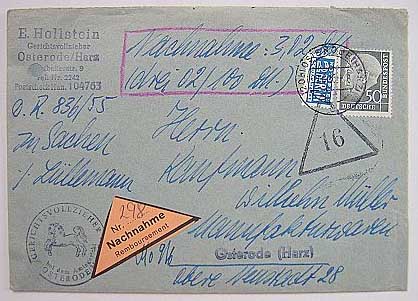 E. Hollstein
Gerichtsvollzieher
Osterode/Harz
Nr. 9
Tel. Nr. 2242
Postscheck Han. 104763
Nachnahme: 3,02 DM
(drei 02/100 DM.)
50
DEUTSCHE
BUNDESPOST
OSTERODE (HARZ)
16
D.R. 834/55
in Sachen
Lüllemann
Herrn
Kaufmann
Wilhelm Müller
Manufakturwaren
Osterode (Harz)
Obere Neustadt 28
Nr. 298
Nachnahme
Remboursement
GERICHTSVOLLZIEHER
OSTERODE